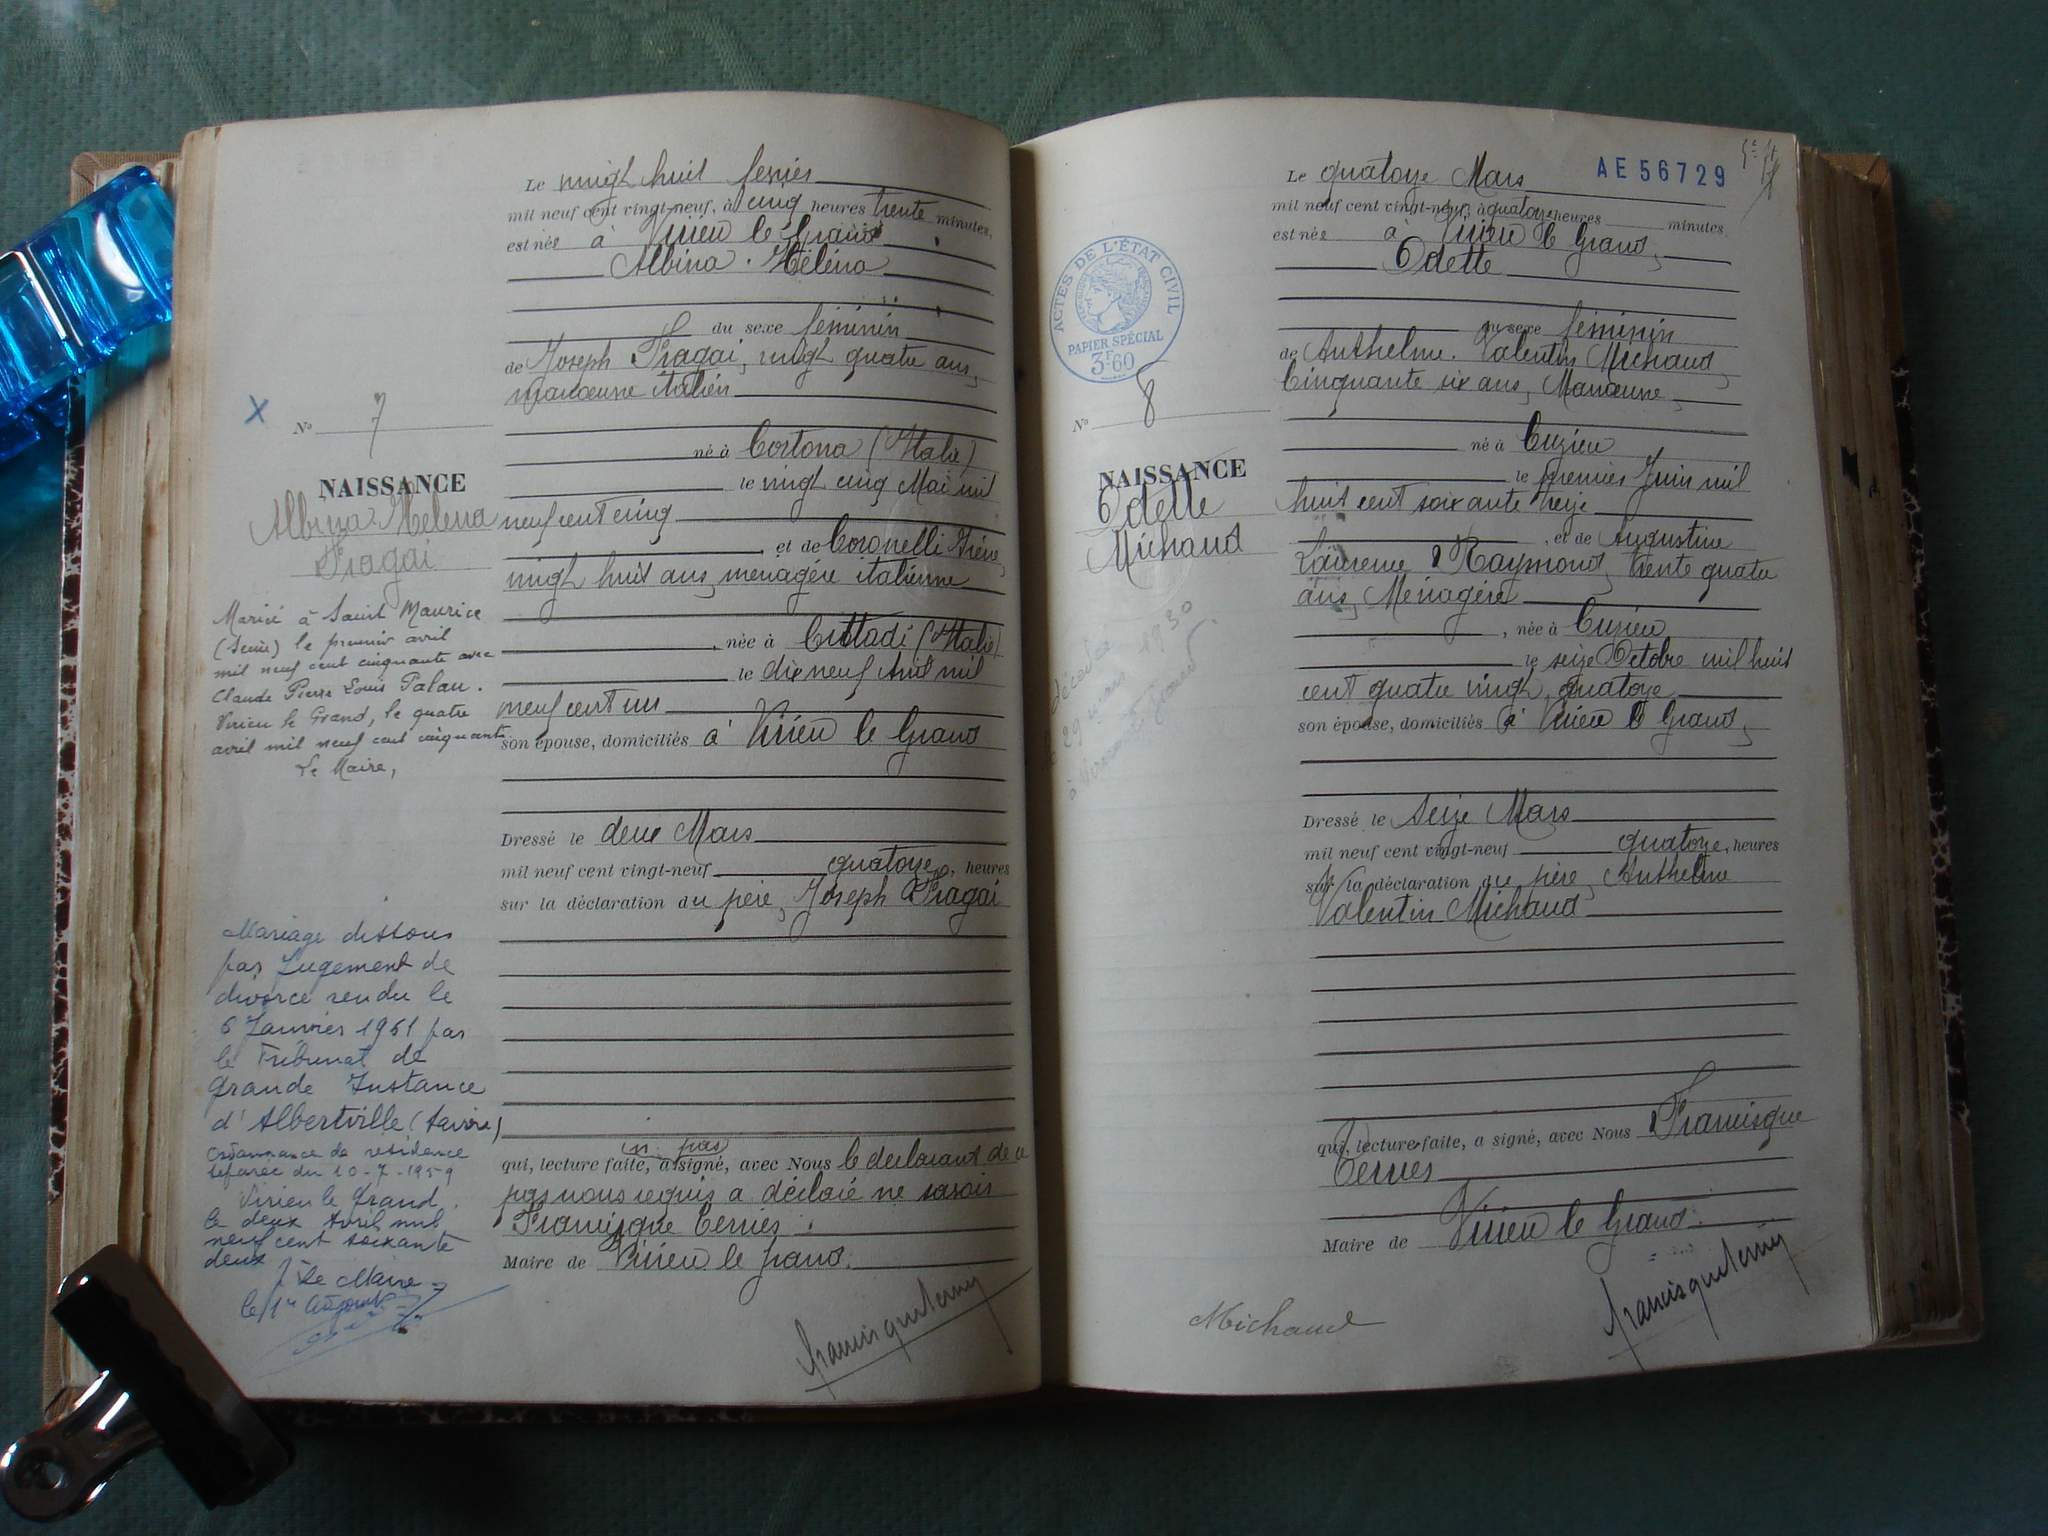 Le vingt huit fevrier
mil neuf cent vingt-neuf, à cinq heures trente minutes,
est née à Virieu le Grand
Albina. Héléna
du sexe féminin
de Joseph Fragai, vingt quatre ans,
manœuvre italien
né à Cortona (Italie)
le vingt cinq Mai mil
neuf cent cinq
, et de Coronelli Irène,
vingt huit ans, menagére italienne
, née à Cittadi (Italie)
le dix neuf Avril mil
neuf cent un
son épouse, domiciliés à Virieu le Grand
Dressé le deux Mars
mil neuf cent vingt-neuf quatorze, heures
sur la déclaration du père, Joseph Fragai
n. pas
qui, lecture faite, a signé, avec Nous le declarant de ce
par nous requis a déclaré ne savoir
Francisque Terrier
Maire de Virieu le grand.
X
No 7
NAISSANCE
Albina. Héléna
Fragai
Marié à Saint Maurice
(Seine) le premier avril
mil neuf cent cinquante avec
Claude Pierre Louis Palau.
Virieu le Grand, le quatre
avril mil neuf cent cinquante
Le Maire,
Mariage dissous
par Jugement de
divorce rendu le
6 Janvier 1961 par
le Tribunal de
Grande Instance
d'Albertville (Savoie)
ordonnance de résidence
séparée du 10-7-1959
Virieu le Grand.
le deux Avril mil
neuf cent soixante
deux
P. Le Maire
le 1er Adjoint
Le quatorze Mars
AE56729
mil neuf cent vingt-neuf, à quatorze heures minutes
est née à Virieu le Grand,
Odette
du sexe féminin
de Anthelme. Valentin Michaud,
Cinquante six ans, Manœuvre,
né à Cuzieu
le premier Juin mil
huit cent soixante treize
, et de Augustine
Laurence Raymond, trente quatre
ans, Ménagére
, née à Cuzieu
le seize Octobre mil huit
cent quatre vingt quatorze
son épouse, domiciliés à Virieu le Grand,
Dressé le Seize Mars
mil neuf cent vingt-neuf quatorze, heures
sur la déclaration du père, Anthelme
Valentin Michaud
qui, lecture faite, a signé, avec Nous Francisque
Terrier
Maire de Virieu le Grand.
ACTES DE L'ÉTAT CIVIL
PAPIER SPÉCIAL
3F60
No 8
NAISSANCE
Odette
Michaud
décédée
29 mars 1930
Michaud